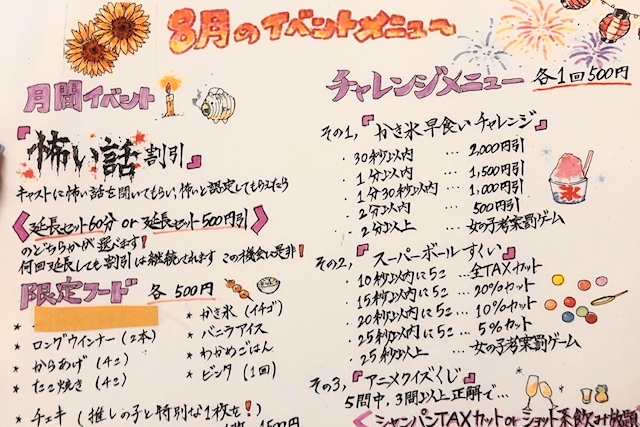 8月のイベントメニュー
月間イベント
『怖い話割引』
キャストに怖い話を聞いてもらい、怖いと認定してもらえたら
《延長セット60分 or 延長セット500円引》
のどちらかが選べます!
何回延長しても割引は継続されます この機会に是非!
限定フード 各500円
* ロングウインナー(2本)
* からあげ(4こ)
* たこ焼き(4こ)
* かき氷(イチゴ)
* バニラアイス
* わかめごはん
* ビンタ(1回)
* チェキ(推しの子と特別な1枚を!)
1500円
チャレンジメニュー 各1回500円
その1,『かき氷早食いチャレンジ』
・30秒以内 … 2,000円引
・1分以内 … 1,500円引
・1分30秒以内 … 1,000円引
・2分以内 … 500円引
・2分以上 … 女の子考案罰ゲーム
その2,『スーパーボールすくい』
・10秒以内に5こ … 全TAXカット
・15秒以内に5こ … 20%カット
・20秒以内に5こ … 10%カット
・25秒以内に5こ … 5%カット
・25秒以上 … 女の子考案罰ゲーム
その3,『アニメクイズくじ』
5問中、3問以上正解で…
《シャンパンTAXカット or ショット系飲み放題
氷